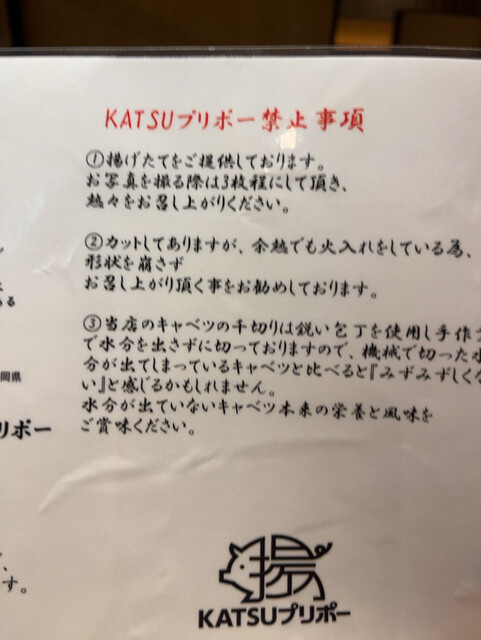 KATSUプリポー禁止事項
①揚げたてをご提供しております。
お写真を撮る際は3枚程にして頂き、
熱々をお召し上がりください。
②カットしてありますが、余熱でも火入れをしている為、
形状を崩さず
お召し上がり頂く事をお勧めしております。
③当店のキャベツの千切りは鋭い包丁を使用し手作
で水分を出さずに切っておりますので、機械で切った水
分が出てしまっているキャベツと比べると『みずみずしくな
い』と感じるかもしれません。
水分が出ていないキャベツ本来の栄養と風味を
ご賞味ください。
ある
岡県
リポー
す。
揚
KATSUプリポー